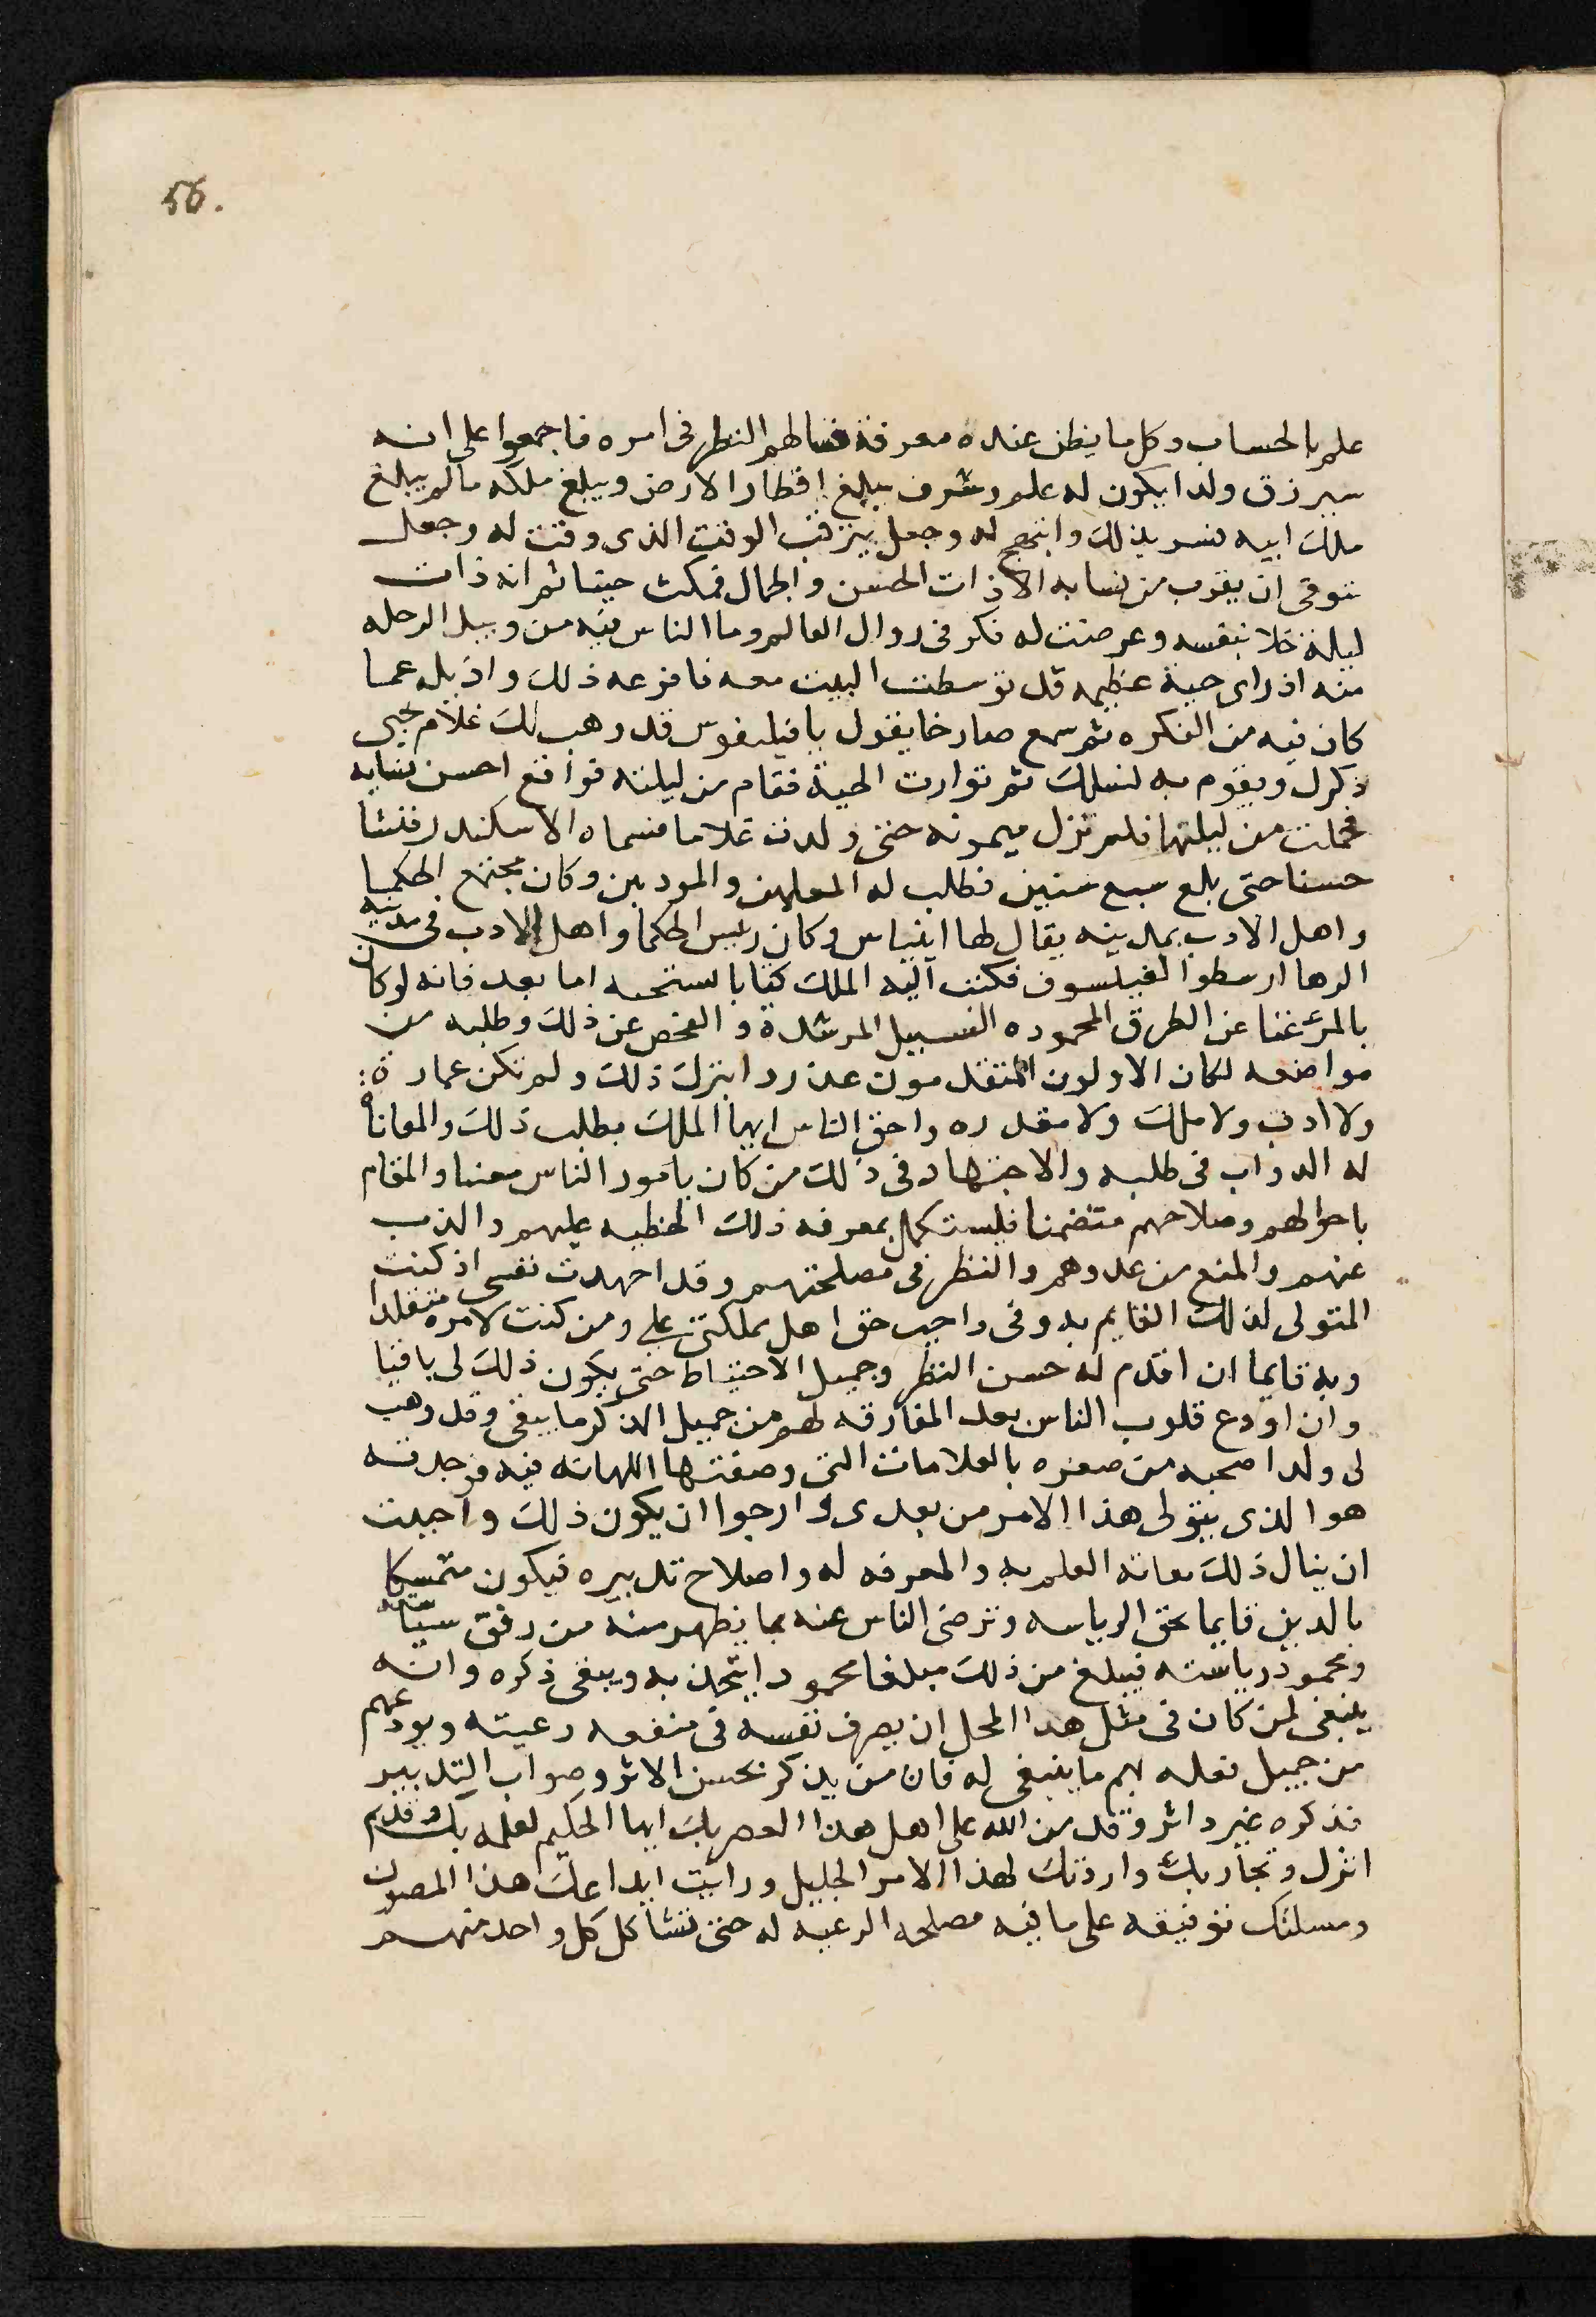 56.
علم بالحساب وكل ما يظن عنده معرفة فسالهم النظر فى امره فاجمعوا على انه
سيرزق ولدا يكون له علم وشرف يبلغ اقطار الارض ويبلغ ملكه ما لم يبلغ
ملك ابيه فسر بذلك وابتهج له وجعل يترقب الوقت الذى وقت له وجعل
يتوقى ان يقرب من نسايه الا ذات الحسن والجمال فمكث حينا ثم انه ذات
ليلة خلا بنفسه وعرضت له فكر فى زوال العالم وما الناس فيه من وبيل الرحله
منه اذ راى حية عظيمه قد توسطت البيت معه فافزعه ذلك واذهله عما
كان فيه من الفكره ثم سمع صارخا يقول يا فيلبفوس قد وهب لك غلام يحيى
ذكرك ويقوم به لنسلك ثم توارت الحية فقام من ليلته فواقع احسن نسايه
فحملت من ليلتها فلم تزل ميمونه حتى ولدت غلاما فسماه الاسكندر فنشا
حسنا حتى بلغ سبع سنين فطلب له المعلمين والمودبين وكان مجتمع الحكما
واهل الادب بمدينه يقال لها اثنياس وكان رئيس الحكما واهل الادب فى مدينه
الرها ارسطوا لفيلسوف فكتب اليه الملك كتابا نسخته اما بعد فانه لو كان
بالمرء غنا عن الطرق المحموده السبيل المرشدة والفحص عن ذلك وطلبه من
مواضعه لكان الاولون المتقدمون عذروا بترك ذلك ولم تكن عمارة:
ولا ادب ولا ملك ولا مقدره واحق الناس ايها الملك بطلب ذلك والمعاناة
له الدواب فى طلبه والاجتهاد فى ذلك من كان بامور الناس معنيا والمقام
باحوالهم وصلاحهم متضمنا فليستكمل بمعرفه ذلك الحظيه عليهم والذب
عنهم والمنع من عدوهم والنظر فى مصلحتهم وقد اجهدت نفسى اذ كنت
المتولى لذلك القايم به وفى واجب حق اهل مملكتى على ومن كنت لامره متقلدا
وبه قايما ان اقدم له حسن النظر وجميل الاحتياط حتى يكون ذلك لى باقيا
وان اودع قلوب الناس بعد المفارقه لهم من جميل الذكر ما يبقى وقد وهب
لى ولدا صحبه من صغره بالعلامات التى وصفتها اللهانه فيه فوجدته
هو الذى يتولى هذا الامر من بعدى وارجوا ان يكون ذلك واحببت
ان ينال ذلك بعانه العلم به والمعرفه له واصلاح تدبيره فيكون متمسكا
بالدين قايما بحق الرياسه وترضى الناس عنه بما يظهر منه من رفق
ومحمود رياسته فيبلغ من ذلك مبلغا محمودا يتحدث به ويبقى ذكره وانه
ينبغى لمن كان فى مثل هذا المحل ان يصرف نفسه فى منفعه رعيته ويودعهم
من جميل فعله بهم ما ينبغى له فان من يذكر بحسن الاثر وصواب التدبير
فذكره غير داثر وقد من الله على اهل هذا العصر بك ايها الحكيم لعلمه بك وقدم
اثرك وتجاربك واردتك لهذا الامر الجليل ورايت ايداعك هذا المصون
ومسلتك توفيقه على ما فيه مصلحه الرعيه له حتى تشاكل كل واحد منهم